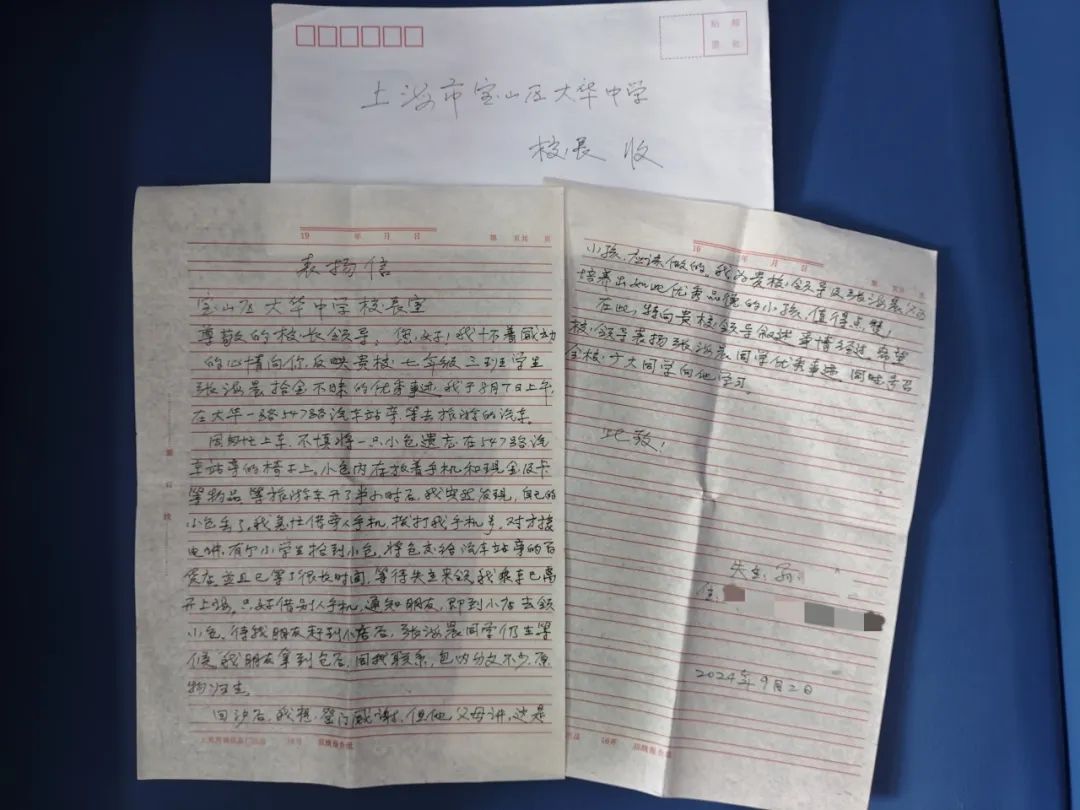 贴 邮
票 处
上海市宝山区大华中学
校长 收
19 年 月 日
第 页共 页
表扬信
宝山区大华中学校长室
尊敬的校长领导，您好！我怀着感动
的心情向你反映贵校七年级三班学生
张海晨拾金不昧的优秀事迹，我于8月7日上午，
在大华一路547路汽车站旁，等去旅游的汽车。
因匆忙上车，不慎将一只小包遗忘在547路汽
车站旁的椅子上，小包内存放着手机和现金及卡
等物品，等旅游车开了半小时后，我突然发现，自己的
小包丢了，我急忙借旁人手机，拨打我手机号，对方接
电话，有个小学生捡到小包，将包交给汽车站旁的百
货店，并且已等了很长时间，等待失主来领，我乘车已离
开上海，只好借别人手机，通知朋友，即到小店去领
小包，待我朋友赶到小店后，张海晨同学仍在等
候，我朋友拿到包后，同我联系，包内分文不少，原
物归主。
回沪后，我想登门感谢，但他父母讲，这是
16开
19 年 月 日
第 页共 页
小孩，应该做的，我为贵校领导及张海晨父母
培养出如此优秀品德的小孩，值得点赞！
在此，特向贵校领导叙述事情经过，希望
校领导表扬张海晨同学优秀事迹，同时号召
全校广大同学向他学习。
此致！
失主：
住：
2024年9月2日
16开